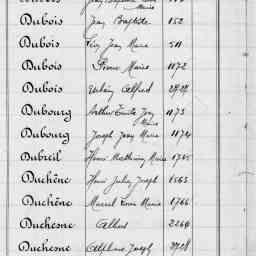 Marie
Dubois Jean Baptiste 152
Dubois Jean Marie 511
Dubois Pierre Marie 1172
Dubois Alfred
Dubourg Arthur Emile Jean 1173
Marie
Dubourg Joseph Jean Marie 1174
Dubreil Henri Mathurin Marie 1765
Duchêne Henri Jules Joseph 1563
Duchêne Marcel Louis Marie 1766
Duchesne Albert 2260
Duchesne Alphonse Joseph